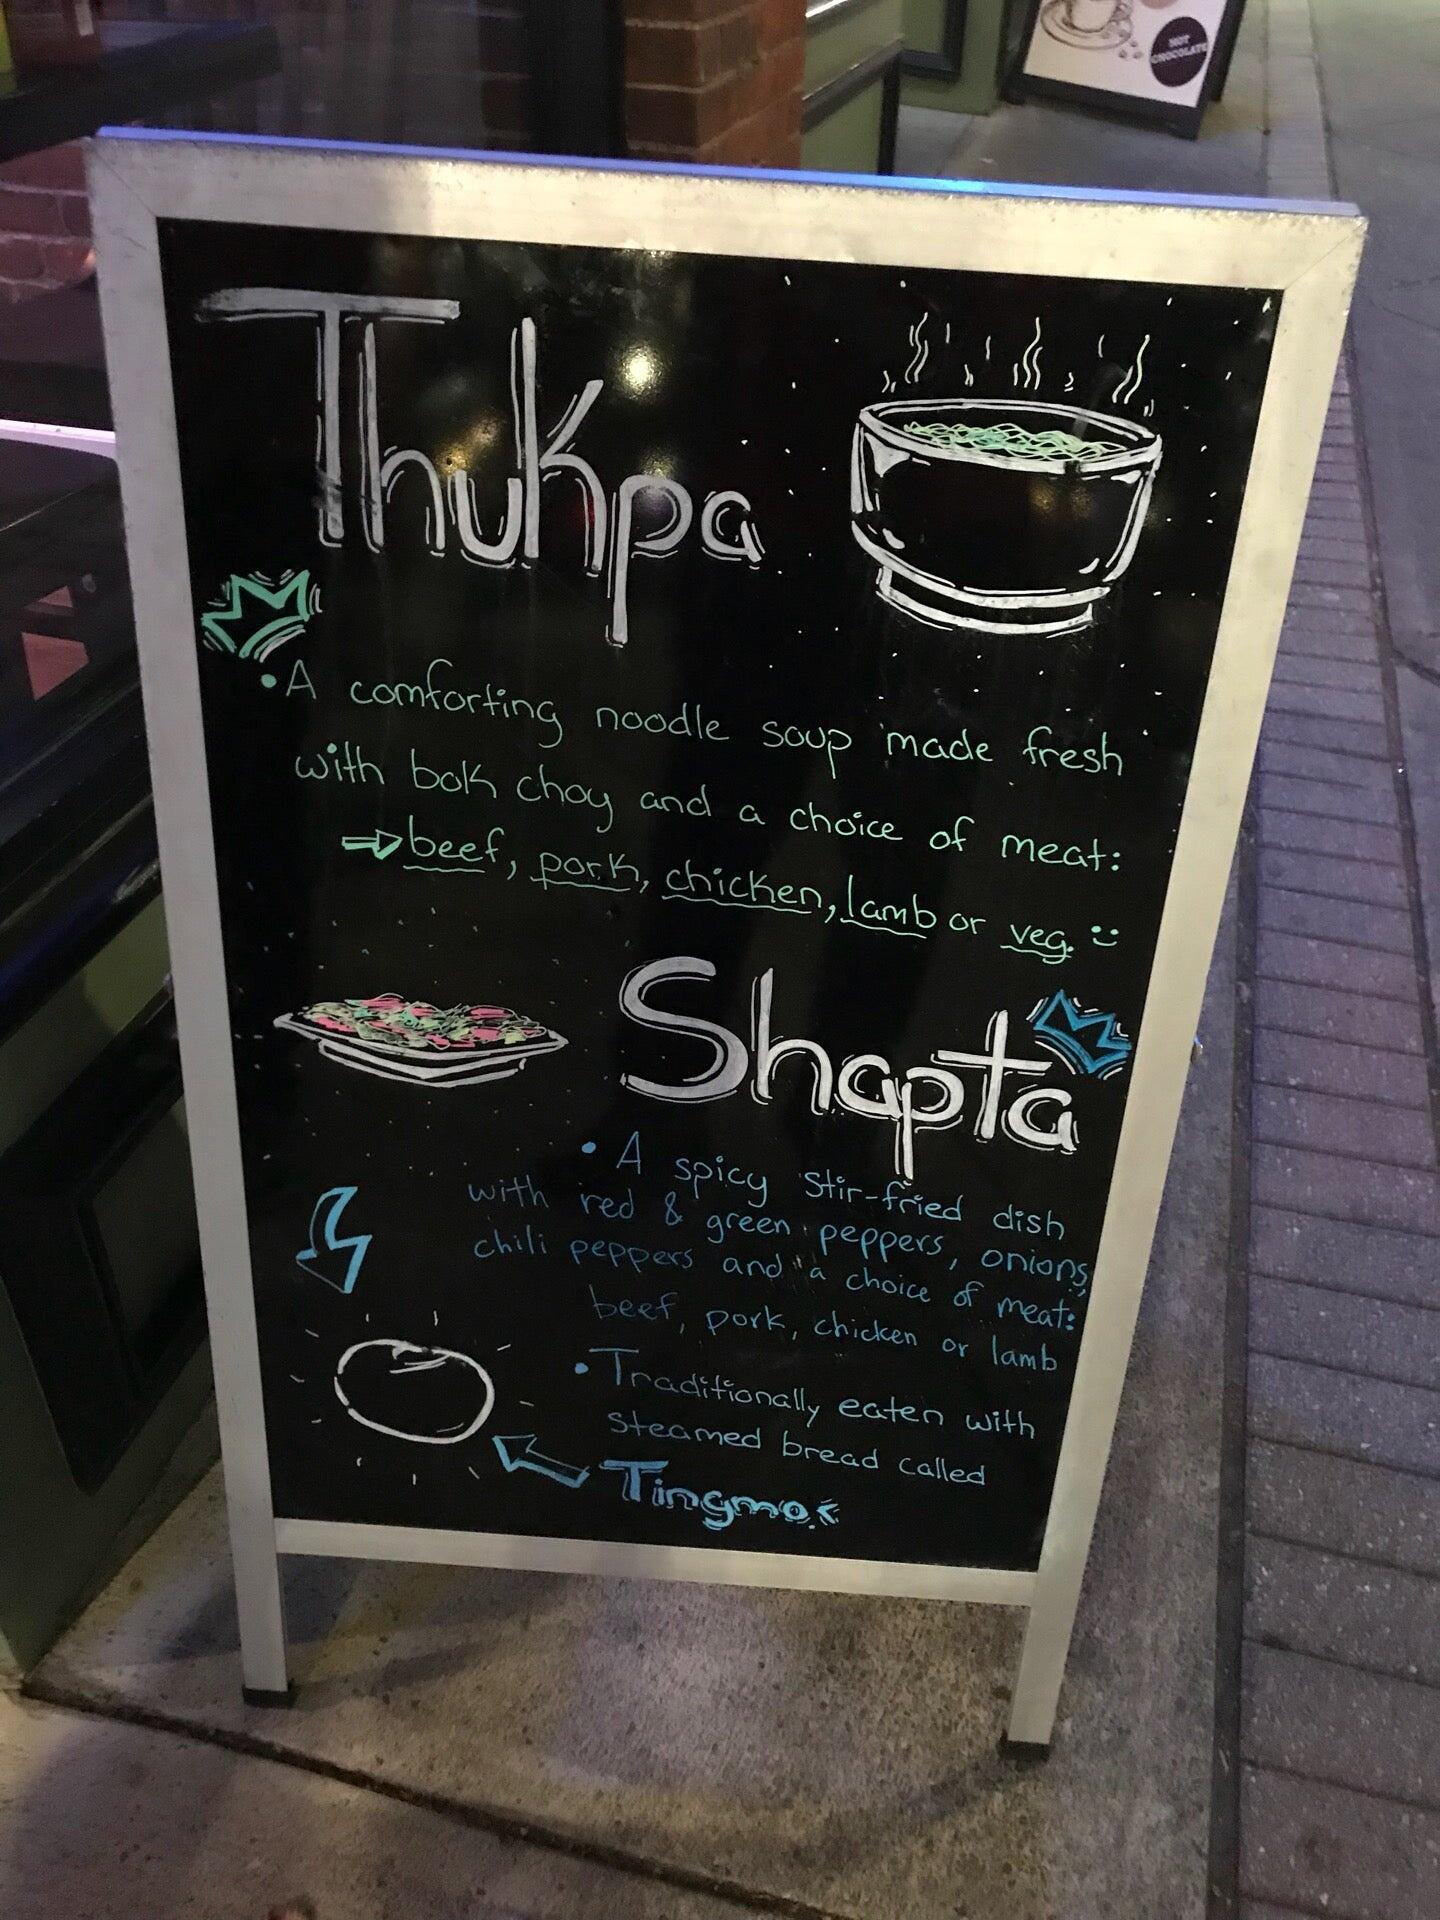 HOT
CHOCOLATE
Thukpa
• A comforting noodle soup made fresh
with bok choy and a choice of meat:
⇒ beef, pork, chicken, lamb or veg. :)
Shapta
• A spicy stir-fried dish
with red & green peppers, onions,
chili peppers and a choice of meat:
beef, pork, chicken or lamb
• Traditionally eaten with
steamed bread called
Tingmo.